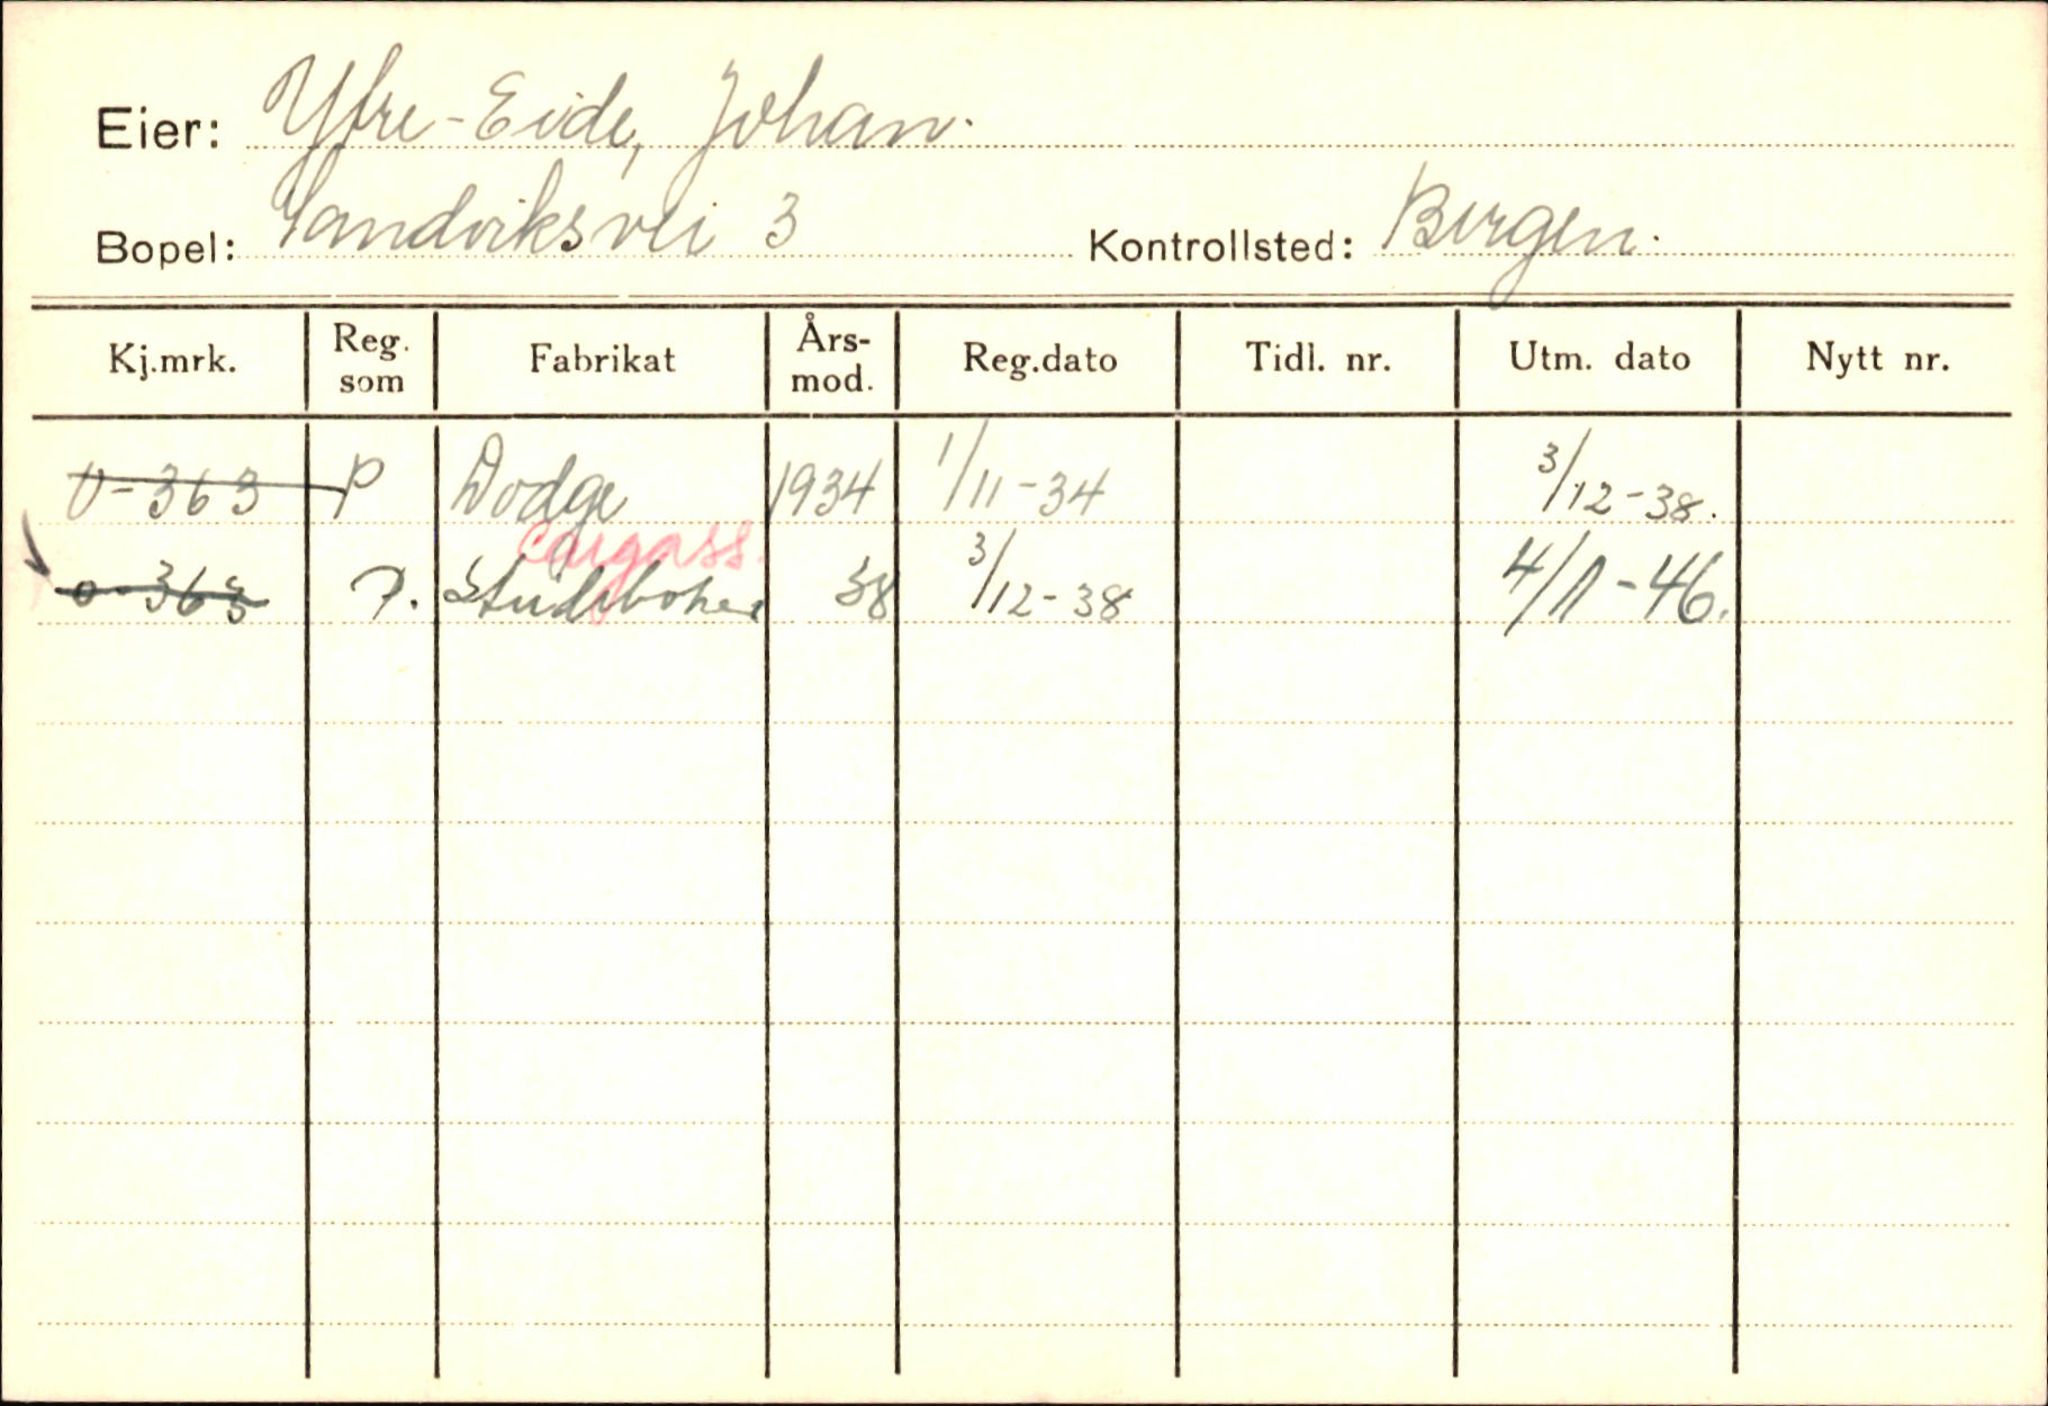 Eier: Ytre-Eide, Johan.
Bopel: Sandviksvei 3 Kontrollsted: Bergen.
Kj.mrk. Reg. som Fabrikat Års-mod. Reg.dato Tidl. nr. Utm. dato Nytt nr.
O-363 P Dodge 1934 1/11-34 3/12-38.
O-363 P. Studeboker 38 3/12-38 4/11-46.